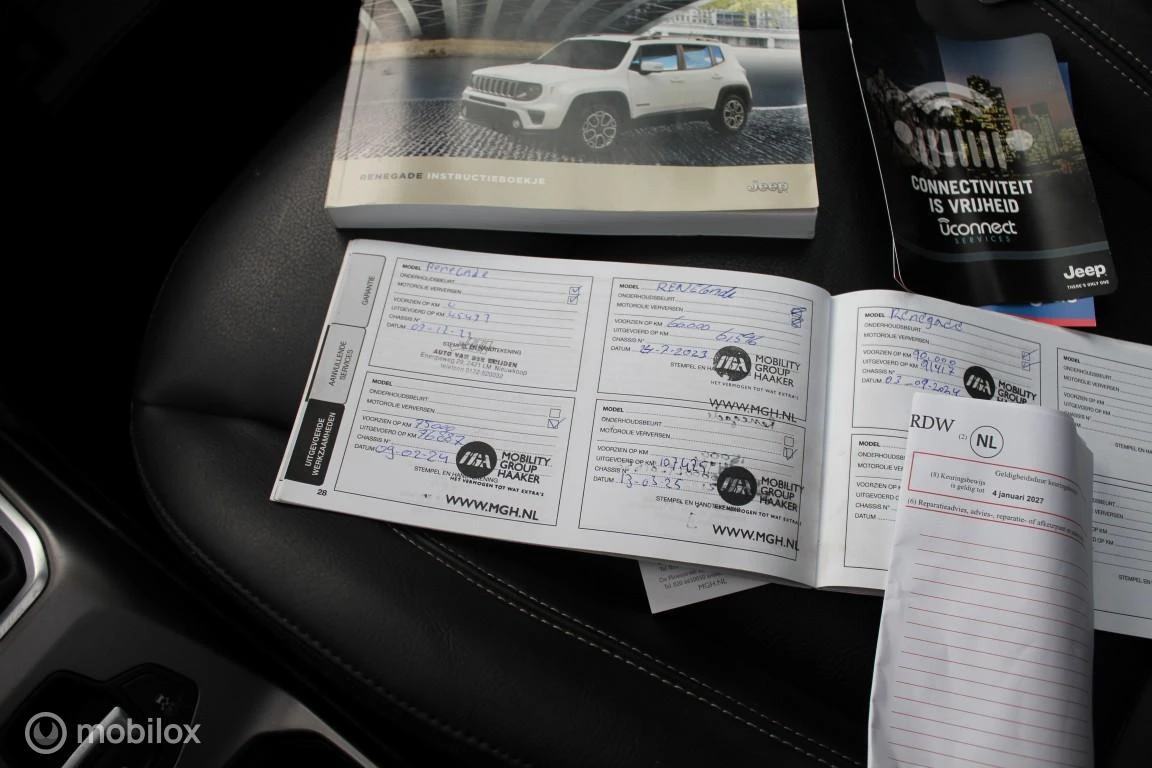 RENEGADE INSTRUCTIEBOEKJE
Jeep
CONNECTIVITEIT
IS VRIJHEID
Uconnect
SERVICES
Jeep
THERE'S ONLY ONE
GARANTIE
AANVULLENDE
SERVICES
UITGEVOERDE
WERKZAAMHEDEN
28
MODEL Renegade
ONDERHOUDSBEURT
MOTOROLIE VERVERSEN
VOORZIEN OP KM
UITGEVOERD OP KM 45427
CHASSIS N°
DATUM
STEMPEL EN HANDTEKENING
AUTO VAN DER
LM Nieuwkoop
MODEL
ONDERHOUDSBEURT
MOTOROLIE VERVERSEN
VOORZIEN OP KM 75000
UITGEVOERD OP KM 76887
CHASSIS N°
DATUM 09-02-24
STEMPEL EN HANDTEKENING
MOBILITY
GROUP
HAAKER
HET VERMOGEN TOT WAT EXTRA'S
WWW.MGH.NL
MODEL RENEGADE
ONDERHOUDSBEURT
MOTOROLIE VERVERSEN
VOORZIEN OP KM 60000
UITGEVOERD OP KM 61596
CHASSIS N°
DATUM 24-7-2023
STEMPEL EN
MOBILITY
GROUP
HAAKER
HET VERMOGEN TOT WAT EXTRA'S
WWW.MGH.NL
MODEL
ONDERHOUDSBEURT
MOTOROLIE VERVERSEN
VOORZIEN OP KM
UITGEVOERD OP KM 107425
CHASSIS N°
DATUM 13-03-25
STEMPEL EN HANDTEKENING
MOBILITY
GROUP
HAAKER
HET VERMOGEN TOT WAT EXTRA'S
WWW.MGH.NL
MODEL Renegade
ONDERHOUDSBEURT
MOTOROLIE VERVERSEN
VOORZIEN OP KM 90,000
UITGEVOERD OP KM 91417
CHASSIS N°
DATUM 03-09-2024
MOBILITY
GROUP
HAAKER
MODEL
ONDERHOUDSBEURT
MOTOROLIE
VOORZIEN
UITGEVOERD
CHASSIS N°
DATUM
MODEL
ONDERHOUDSBEURT
MOTOROLIE VERVERSEN
VOORZIEN OP KM
UITGEVOERD OP KM
CHASSIS N°
DATUM
STEMPEL EN
STEMPEL EN
MGH.NL
RDW
(2)
NL
Geldigheidsduur keuringsbewijs
(8) Keuringsbewijs
is geldig tot 4 januari 2027
(6) Reparatieadvies, advies-, reparatie- of afkeurpunt
mobilox